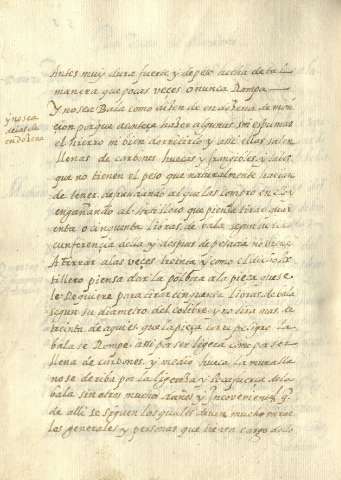 Antes muy dura fuerte y de peso hecha de tal
manera que pocas veces o nunca Rompa
Y no sea Bala como dizen de en dozena de muni
cion porque acontece haber algunas sin espumar
el hierro ni bien derretirlo y assi ellas salen
llenas de carbones huecas y frangibles y tales
que no tienen el peso que naturalmente havian
de tener defraudando al que las compro en
engañando al artillero que piensa tirar quar
enta o cinquenta libras de vala segun su cir
cunferencia hecha y despues de pesada no llega
A tirar a las veces treinta y como el dicho ar
tillero piensa dar la polbora a la pieça que se
le Requiere para tirar cinquenta libras de vala
segun su diametro del calibre y no tira mas de
treinta de aqui es que la pieça corre peligro la
bala se Rompe assi por ser ligera como por ser
llena de carbones y medio hueca la muralla
no se deriba por la ligereza y poca fuerça de la
bala sin otros mucho daños y inconvenientes q.
de alli se siguen los quales deven mucho mirar
los generales y personas que tienen cargo dello
y no sea
balas de
en dozena